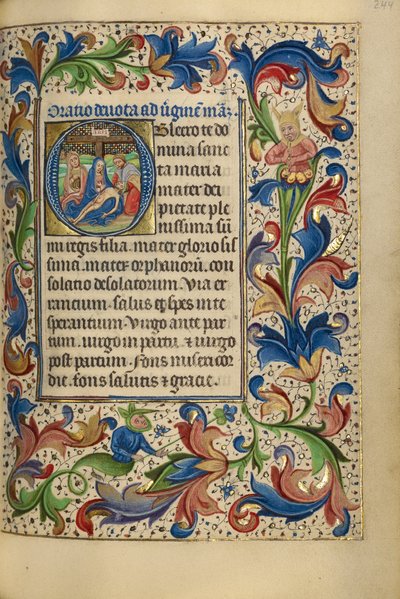 244
Oratio deuota ad uginē maz.
Obsecro te do
mina sanc
ta maria
mater dei
pietate ple
nissima sū
mi regis filia. mater glorio sis
sima. mater orphanorū. con
solatio desolatorum. Via er
rancium. salus et spes in te
sperantium. Virgo ante par
tum. uirgo in partu. et uirgo
post partum. Fons misericor
die. fons salutis et gracie.